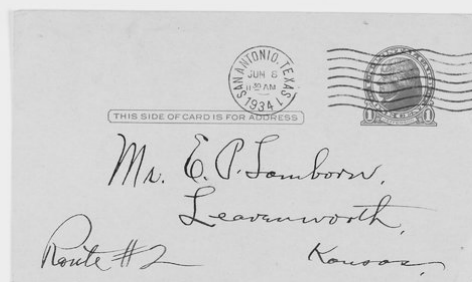 SAN ANTONIO, TEXAS
JUN 6
1934
THIS SIDE OF CARD IS FOR ADDRESS
Mr. E. P. Lamborn,
Leavenworth,
Route #2 Kansas,